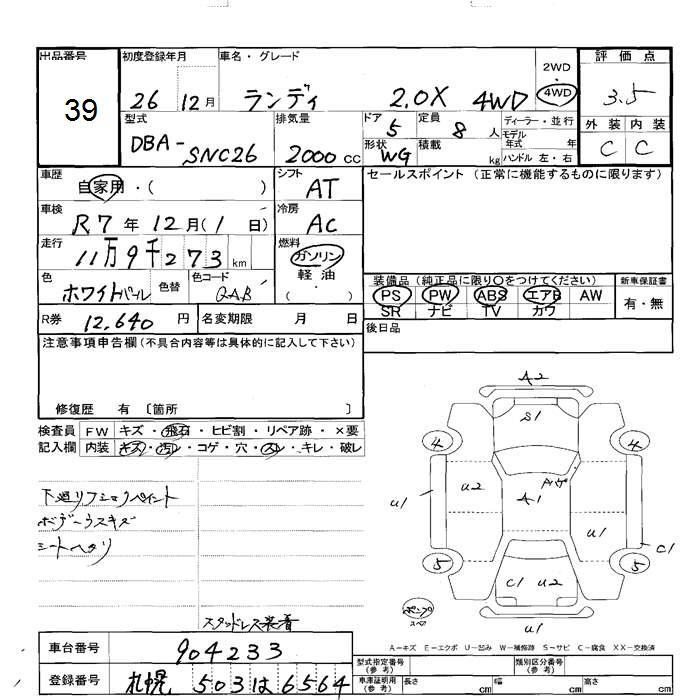 出品番号 39
初度登録年月 26 12月
車名・グレード ランディ 2.0X 4WD
2WD
4WD
評価点 3.5
外装 内装
C C
型式 DBA-SNC26
排気量 2000cc
ドア 5
定員 8人
形状 WG
積載 kg
ディーラー・並行
モデル年式 年
ハンドル 左・右
車歴 自家用・( )
シフト AT
セールスポイント(正常に機能するものに限ります)
車検 R7年12月(1日)
冷房 AC
走行 11万9千273km
燃料 ガソリン・軽油・( )
色 ホワイトパール 色替
色コード QAB
装備品(純正品に限り○をつけてください)
PS PW ABS エアB AW
SR ナビ TV カワ
新車保証書
有・無
R券 12,640円
名変期限 月 日
後日品
注意事項申告欄(不具合内容等は具体的に記入して下さい)
修復歴 有 〔箇所 〕
検査員記入欄
FW キズ・飛石・ヒビ割・リペア跡・×要
内装 キズ・汚レ・コゲ・穴・スレ・キレ・破レ
下廻リフショクペイント
ボデーウスキズ
シートヘタリ
スタッドレス装着
A2
S1
4 4
Aゲ
U1 U2 A1
U1
C1
5 5
C1 U2
U1
ポンプ
スペア
A-キズ E-エクボ U-凹み W-補修跡 S-サビ C-腐食 XX-交換済
車台番号 904233
登録番号 札幌 503 は 6564
型式指定番号(参考)
類別区分番号(参考)
車庫証明用(参考) 長さ cm 幅 cm 高さ cm